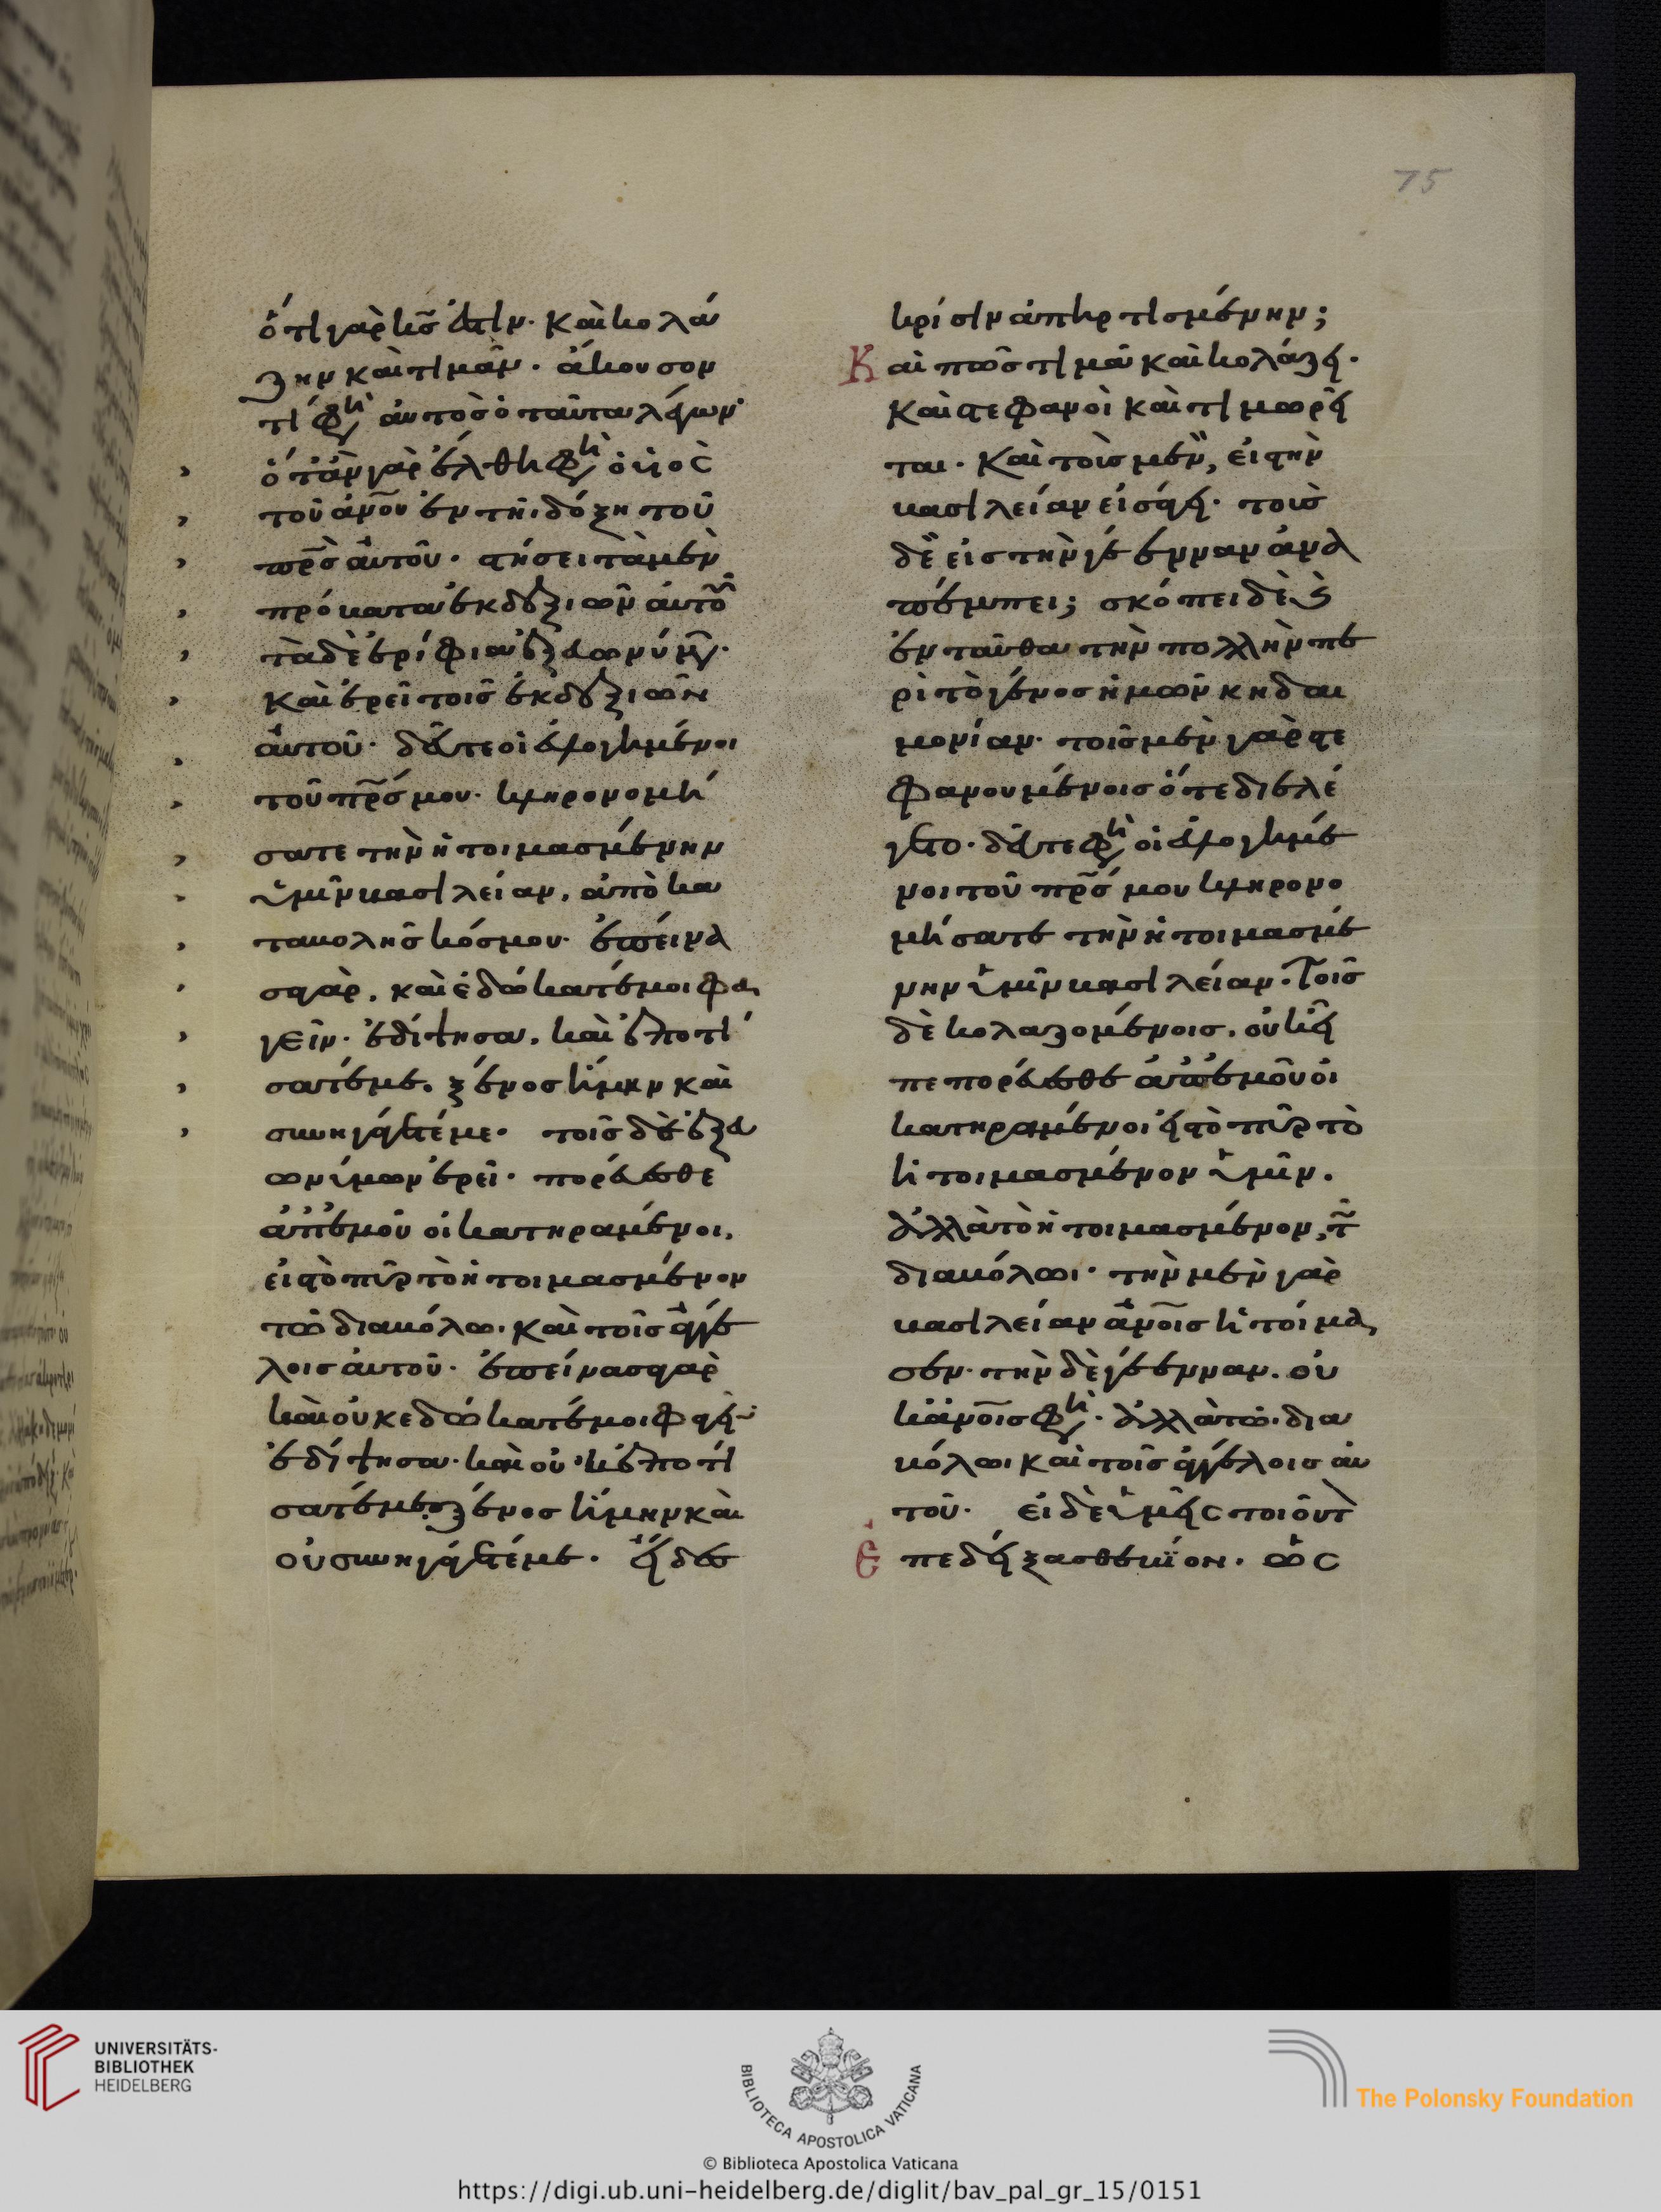 75
ὅτι γὰρ κ̅ς̅ ἐστιν. καὶ κολά
ζην καὶ τιμᾶν. ἄκουσον
τί φη αὐτὸς ὁ ταῦτα λέγων·
ὅτἂν γὰρ ἔλθη φη ὁ υἱος
τοῦ ἀν̅ου ἐν τῆι δόξη τοῦ
πρ̅ς̀ ἁυτοῦ. στήσει τὰ μὲν
πρόβατα ἐκ δεξιῶν αὐτοῦ
τὰ δὲ ἐρίφια ἐξ εὐωνύμ.
καὶ ἐρεῖ τοῖς ἐκ δεξιῶν
ἁυτοῦ. δεῦτε οἱ εὐλογημένοι
τοῦ πρ̅ς μου. κληρονομή
σατε τὴν ἡτοιμασμένην
ὑμῖν βασιλείαν. ἀπὸ κα
ταβολῆς κόσμου. ἐπείνα
σα γὰρ. καὶ ἐδώκατέ μοι φα
γεῖν. ἐδίψησα. καὶ ἐποτί
σατέ με. ξένος ἤμην καὶ
συνηγάγετέ με. τοῖς δὲ ἐξ ευ
ωνύμων ἐρεῖ. πορεύεσθε
ἀπ' ἐμοῦ οἱ κατηραμένοι.
εἰς τὸ πῦρ τὸ ἡτοιμασμένον
τῶ διαβόλω. καὶ τοῖς ἀγγέ
λοις αὐτοῦ. ἐπείνασα γὰρ
καὶ οὐκ εδώκατέ μοι φαγεῖν
ἐδίψησα. καὶ οὐκ ἐποτί
σατέ με. ξένος ἤμην καὶ
οὐ συνηγάγετέ με. εἶδες
κρίσιν ἀπηρτισμένην;
Καὶ πῶς τιμᾶ καὶ κολάζει.
καὶ στεφανοὶ καὶ τιμωρεῖ
ται. καὶ τοῖς μὲν, εἰς τὴν
βασιλείαν εἰσάγει. τοὺς
δὲ εἰς τὴν γέενναν ἀνα
πέμπει; σκόπει δὲ καὶ
ἐνταῦθα τὴν πολλὴν πε
ρὶ τὸ γένος ἡμῶν κηδαι
μονίαν. τοῖς μὲν γὰρ στε
φανουμένοις ὅτε διελέ
γετο. δεῦτε φη οἱ εὐλογημέ
νοι τοῦ πρ̅ς μου κληρονο
μήσατε τὴν ἡτοιμασμέ
νην ὑμῖν βασιλείαν. Τοῖς
δὲ κολαζομένοις. οὐκεῖ
πε πορεύεσθε ἀπ' ἐμοῦ οἱ
κατηραμένοι εἰς τὸ πῦρ τὸ
ἡτοιμασμένον ὑμῖν.
ἀλλὰ τὸ ἡτοιμασμένον, τῶ
διαβόλωι. τὴν μὲν γὰρ
βασιλείαν ἀν̅οις ἡτοίμα
σεν. τὴν δὲ γέενναν. οὐ
κ ἀν̅οις φη. ἀλλὰ τῶ δια
βόλωι καὶ τοῖς ἀγγέλοις αὐ
τοῦ. εἰ δὲ ὑμεῖς τοιοῦτ
Ἐπεδείξασθε βίον. ὡς
UNIVERSITÄTS-
BIBLIOTHEK
HEIDELBERG
BIBLIOTECA APOSTOLICA VATICANA
The Polonsky Foundation
© Biblioteca Apostolica Vaticana
https://digi.ub.uni-heidelberg.de/diglit/bav_pal_gr_15/0151